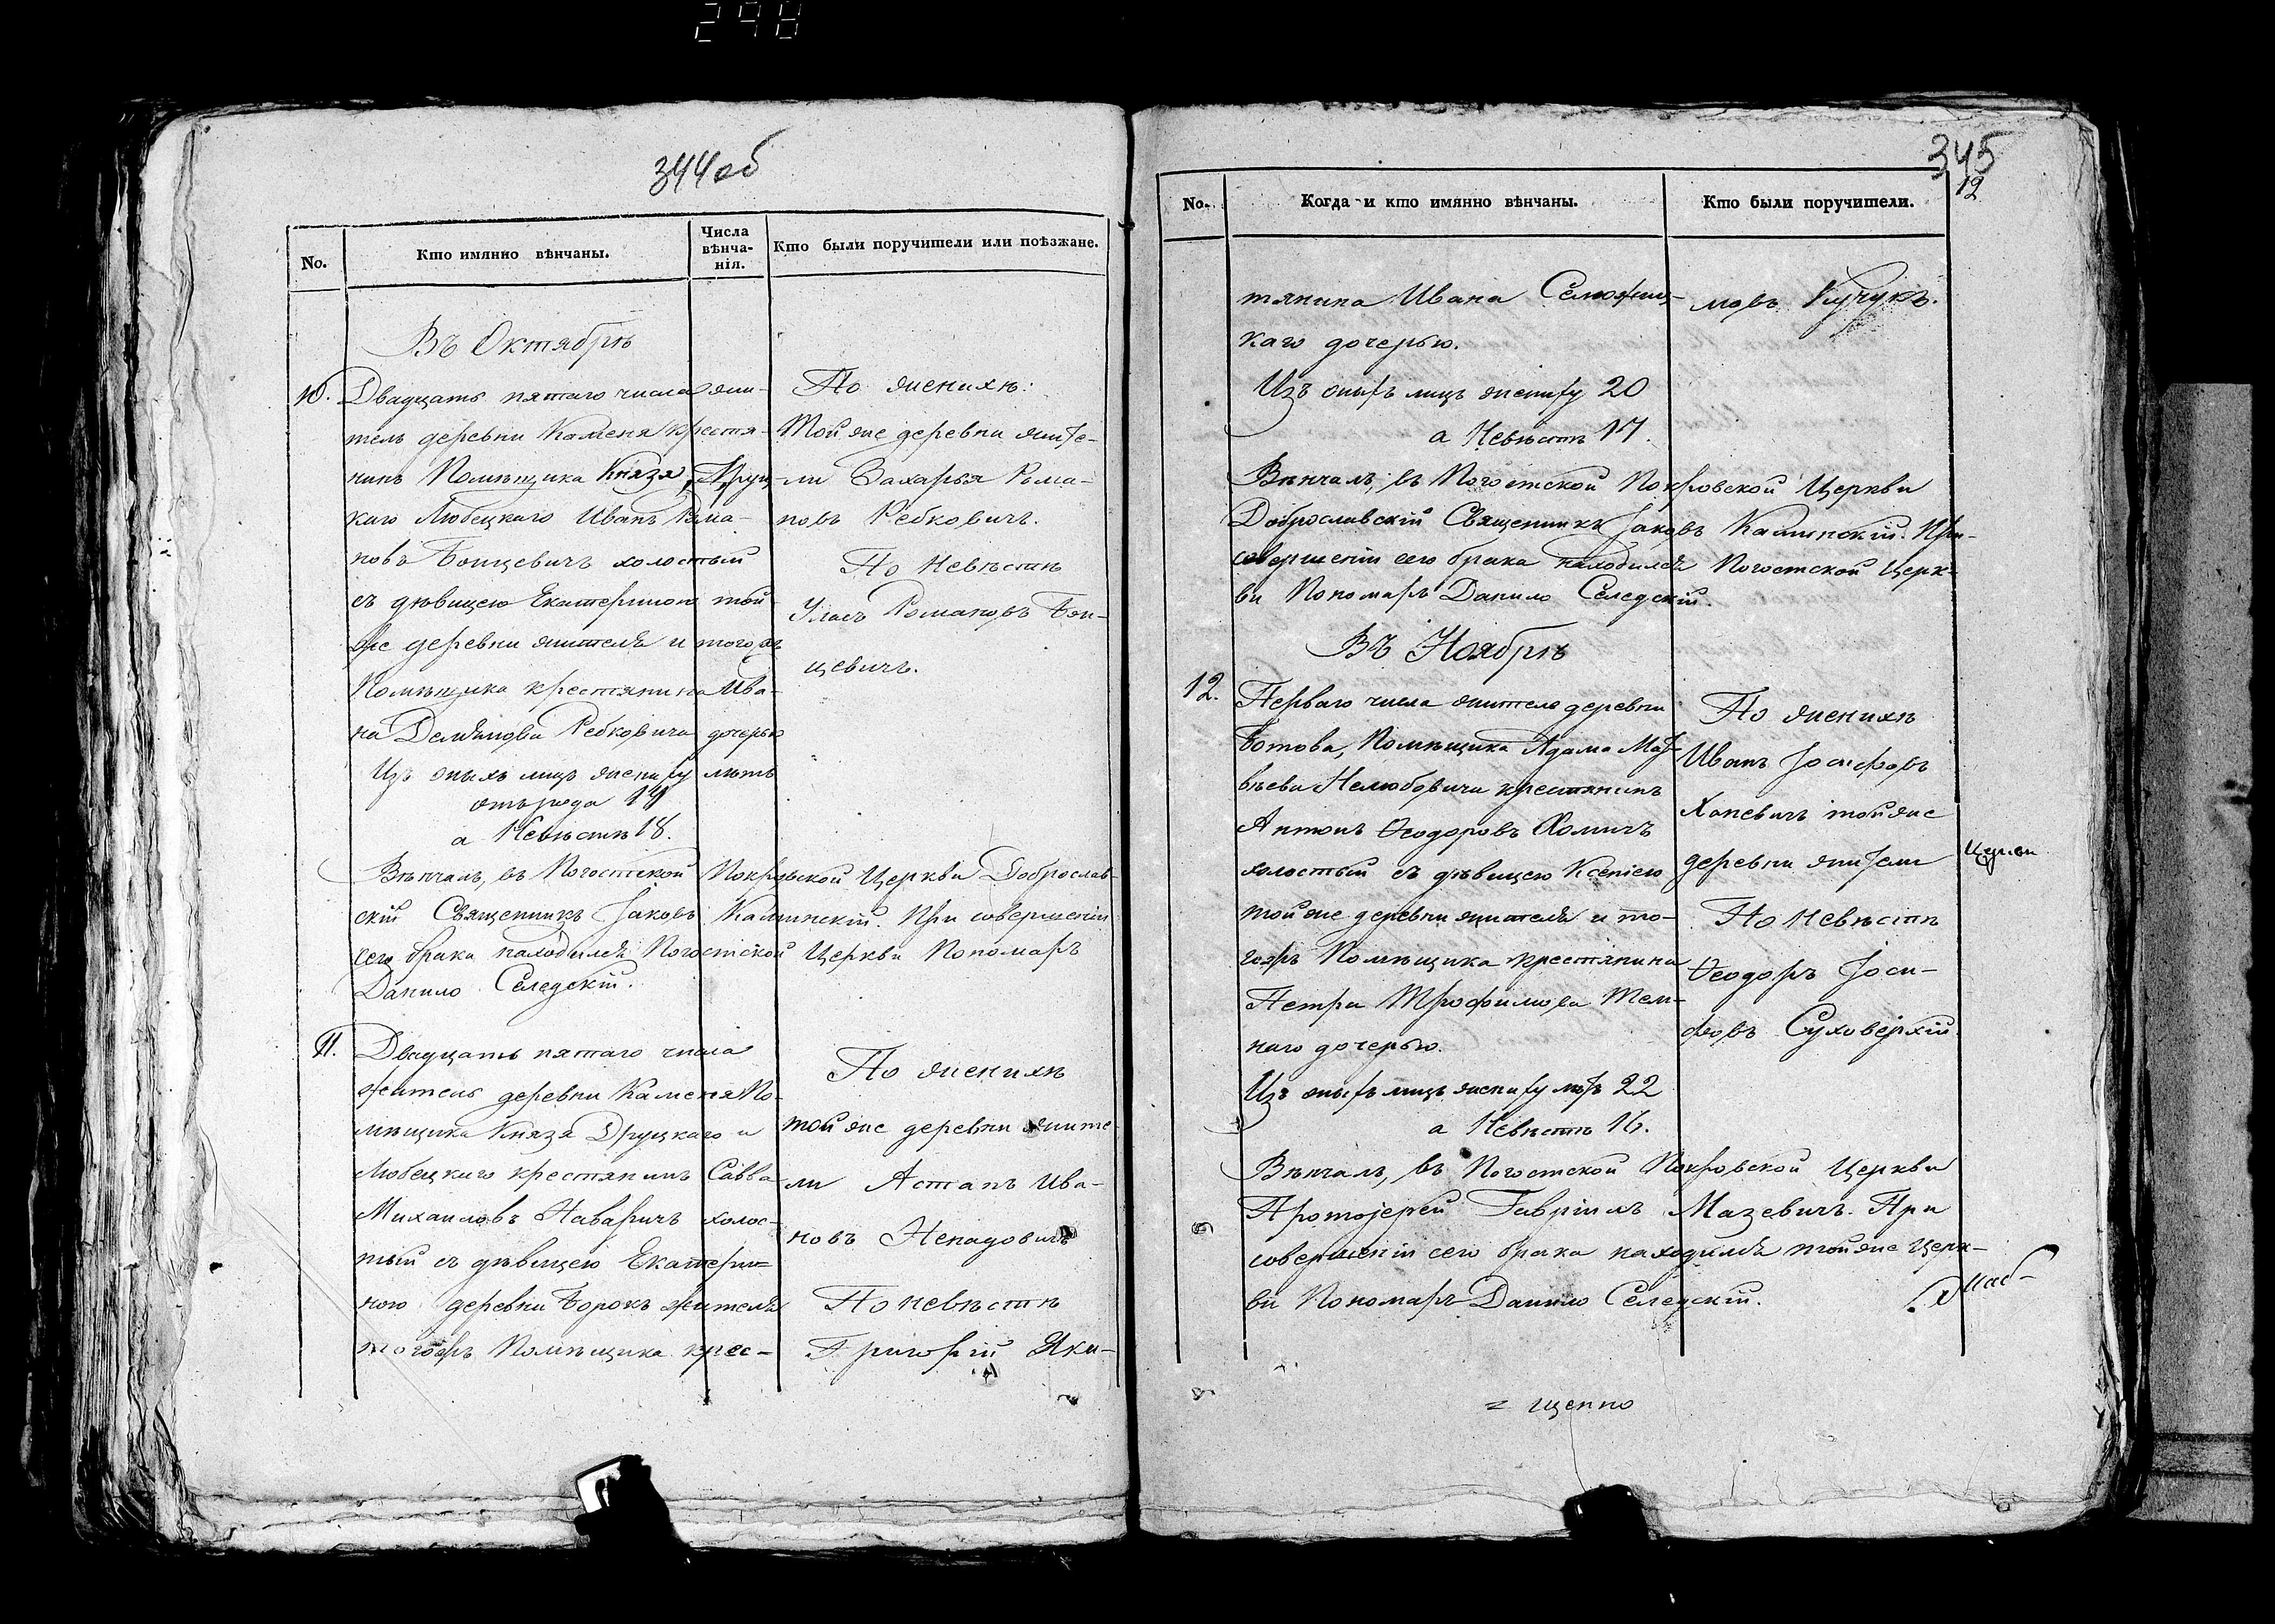 298
344об
No.
Кто имянно вѣнчаны.
Числа вѣнча-
нія.
Кто были поручители или поѣзжане.
Въ Октябрѣ
10. Двадцать пятаго числа жи-
тель деревни Каменя крестя-
нинъ Помѣщика Князя Друц-
каго Любецкаго Иванъ Рома-
новъ Бонцевичъ холостый
съ дѣвицею Екатериною той
же деревни жителя и тогожъ
Помѣщика крестянина Ива-
на Демянова Ребковича дочерью
Изъ оныхъ лицъ жениху лѣтъ
отъ рода 19
а Невѣстѣ 18.
По женихѣ:
Той же деревни жите-
ли Захарья Рома-
новъ Ребковичъ.
По Невѣстѣ
Уласъ Романовъ Бон-
цевичъ.
Вѣнчалъ, въ Погостской Покровской Церкви Доброслав-
скій Священникъ Іаковъ Калинскій. При совершеніи
сего брака находился Погостской Церкви Пономарь
Данило Селедскій.
11. Двадцать пятаго числа
житель деревни Каменя По-
мѣщика Князя Друцкаго и
Любецкаго крестянинъ Савва
Михаиловъ Наваричъ холос-
тый съ дѣвицею Екатери-
ною деревни Борокъ жителя
тогожъ Помѣщика крес-
По женихѣ
той же деревни жите-
ли Астапъ Ива-
новъ Ненадовичъ
По невѣстѣ
Григорій Яки-
345
12
No.
Когда и кто имянно вѣнчаны.
Кто были поручители.
тянина Ивана
каго дочерью.
Изъ оныхъ лицъ жениху 20
а Невѣстѣ 17.
мовъ Кучукъ.
Вѣнчалъ, въ Погостской Покровской Церкви
Доброславскій Священникъ Іаковъ Калинскій. При
совершеніи сего брака находился Погостской Церк-
ви Пономарь Данило Селедскій.
Въ Ноябрѣ
12. Перваго числа житель деревни
Ботова, Помѣщика Адама Мат-
вѣева Нелюбовича крестянинъ
Антонъ Ѳеодоровъ Хомичъ
холостый съ дѣвицею Ксеніею
той же деревни жителя и то-
гожъ Помѣщика крестянина
Петра Трофимова Тем-
наго дочерью.
Изъ оныхъ лицъ жениху лѣтъ 22
а Невѣстѣ 16.
По женихѣ
Иванъ Іосифовъ
Хапевичъ той же
деревни жители
По Невѣстѣ
Ѳеодоръ Іоси-
фовъ Суховерхій.
Вѣнчалъ, въ Погостской Покровской Церкви
Протоіерей Гавріилъ Мазевичъ. При
совершеніи сего брака находился той же Церк-
ви Пономарь Данило Селедскій.
= щенно